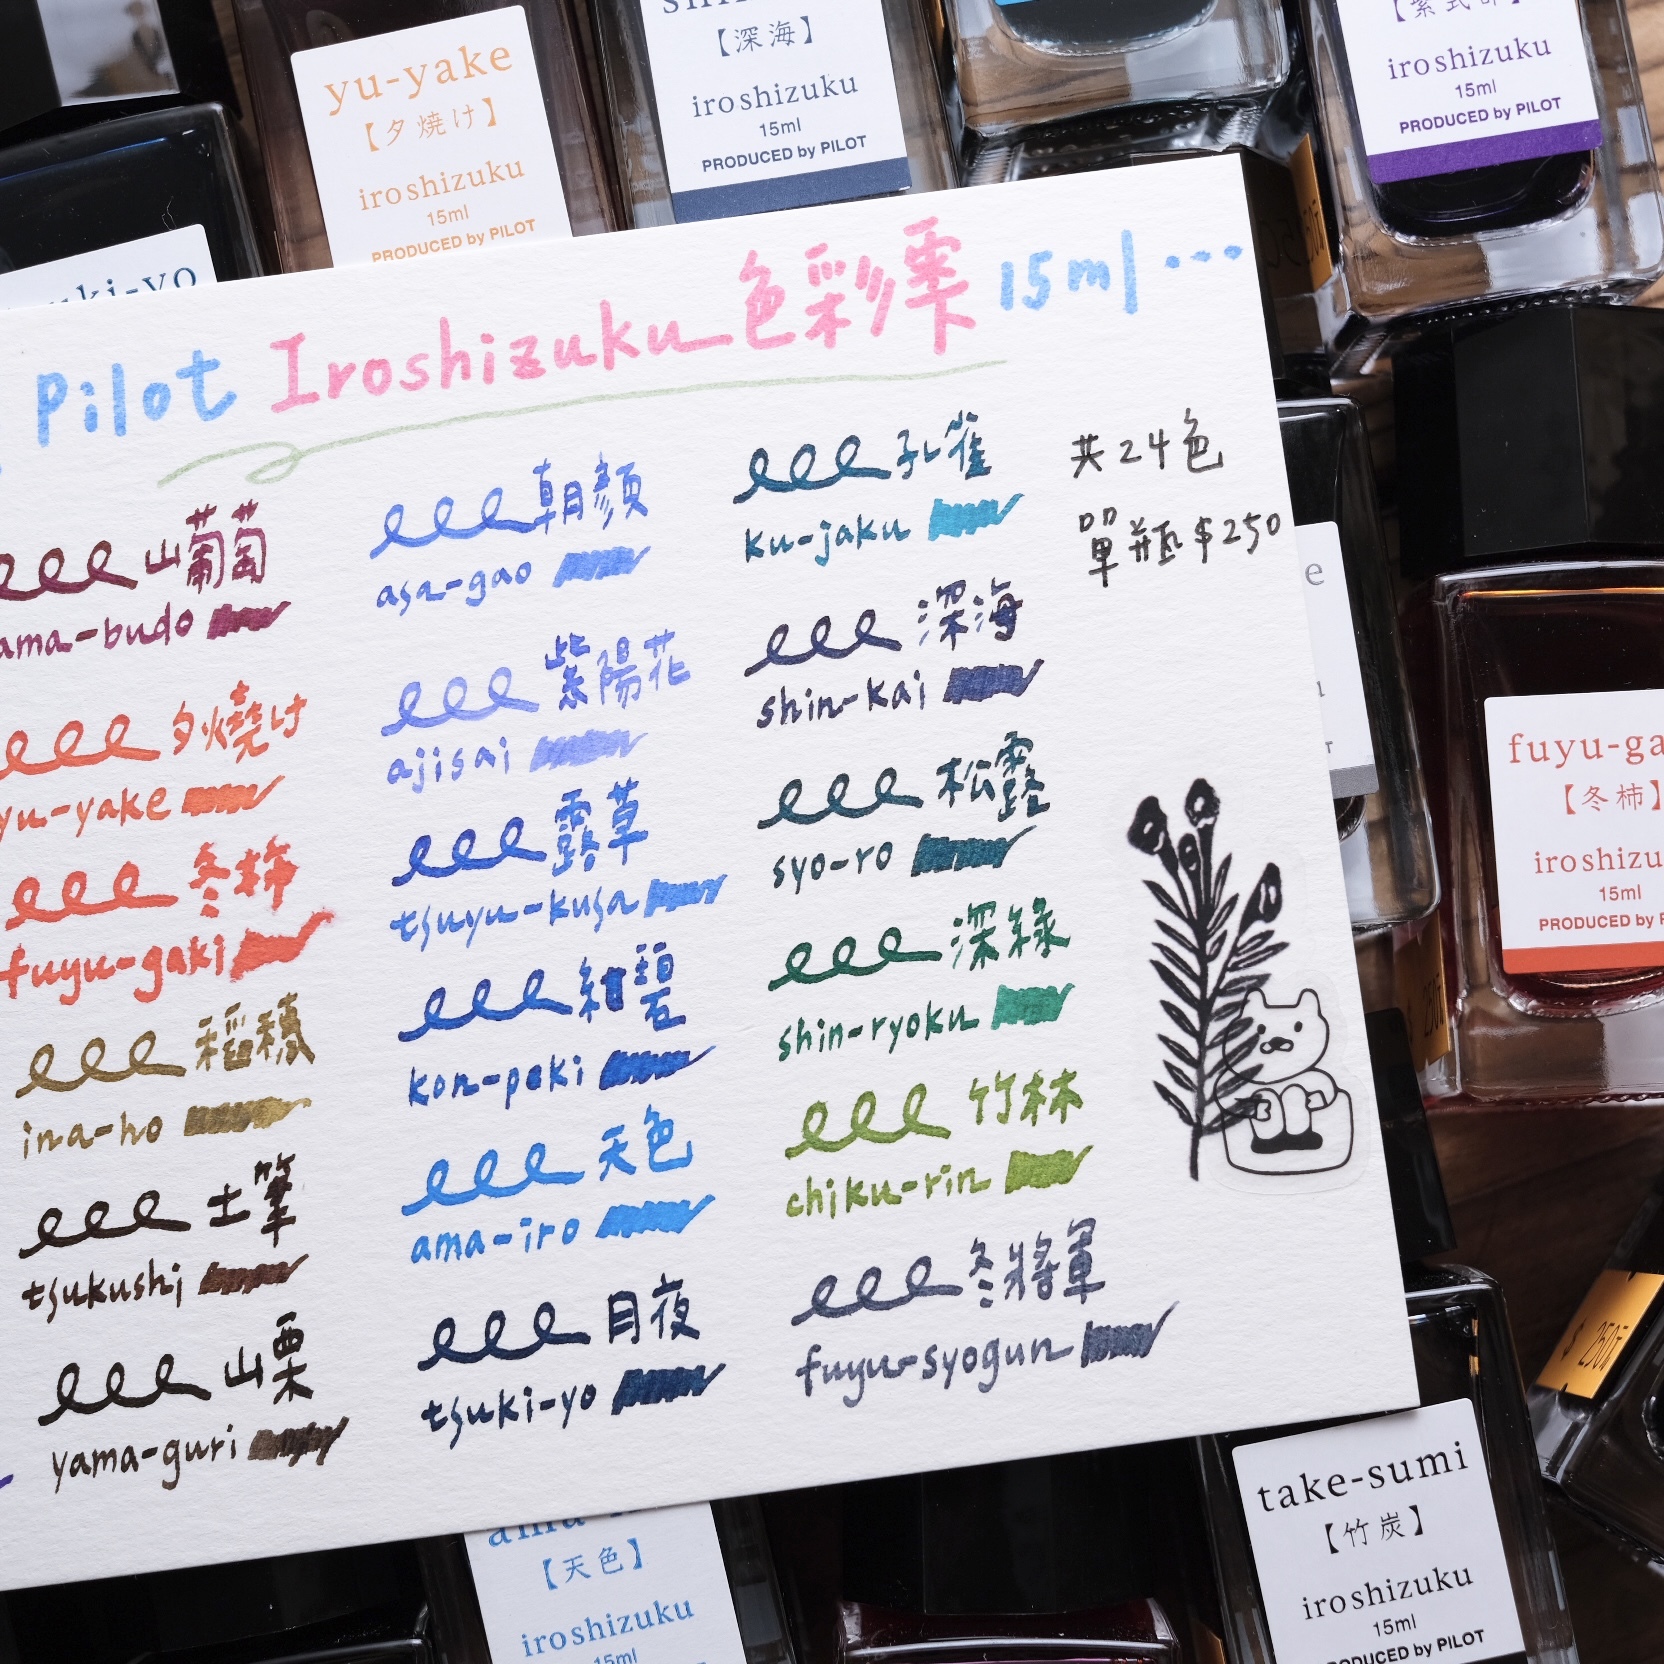 yu-yake
【夕焼け】
iroshizuku
15ml
PRODUCED by PILOT
【深海】
iroshizuku
15ml
PRODUCED by PILOT
iroshizuku
15ml
PRODUCED by PILOT
uki-yo
Pilot Iroshizuku 色彩雫 15ml...
山葡萄
ama-budo
夕燒け
yu-yake
冬柿
fuyu-gaki
稻穗
ina-ho
土筆
tsukushi
山栗
yama-guri
朝顏
asa-gao
紫陽花
ajisai
露草
tsuyu-kusa
紺碧
kon-peki
天色
ama-iro
月夜
tsuki-yo
孔雀
ku-jaku
深海
shin-kai
松露
syo-ro
深緑
shin-ryoku
竹林
chiku-rin
冬將軍
fuyu-syogun
共24色
單瓶$250
fuyu-ga
【冬柿】
iroshizu
15ml
PRODUCED by P
$250元
take-sumi
【竹炭】
iroshizuku
15ml
PRODUCED by PILOT
【天色】
iroshizuku
15ml